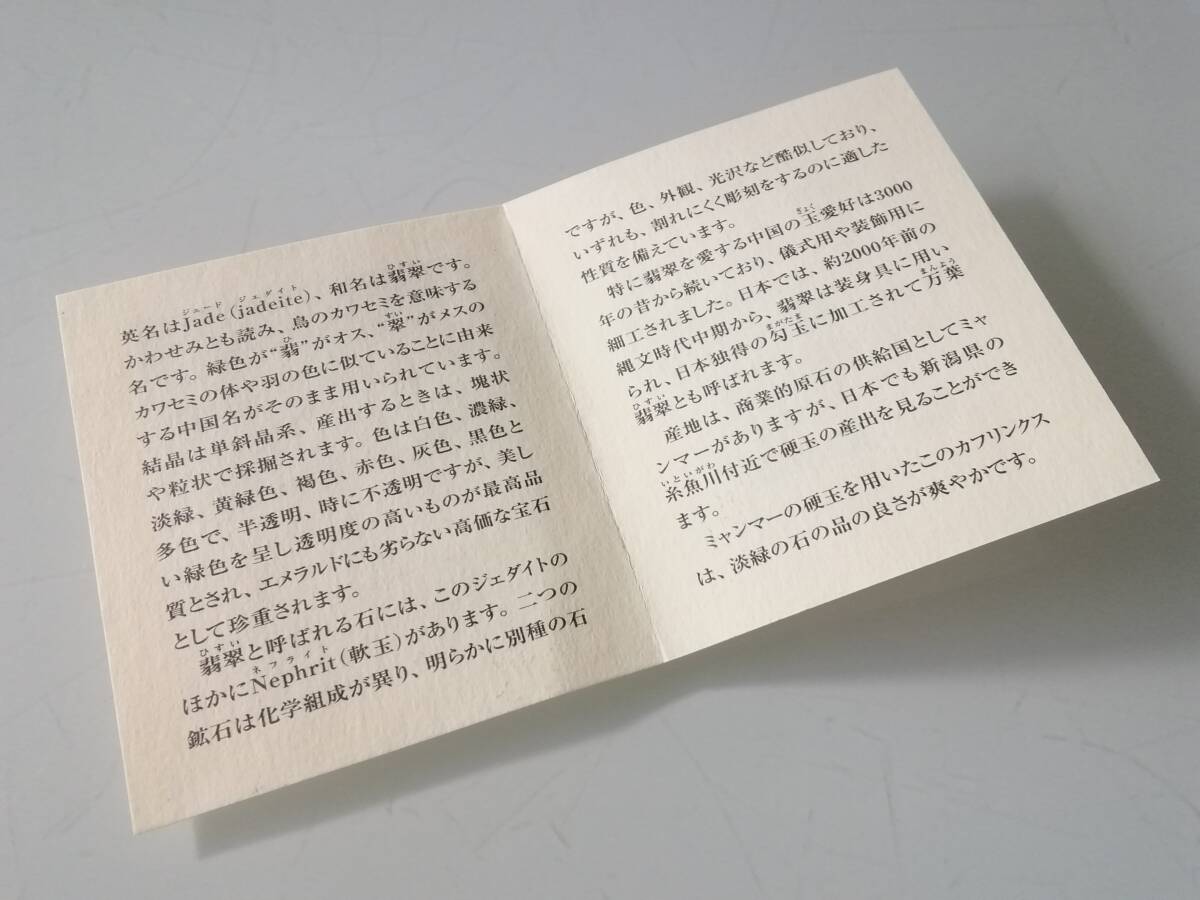 英名はJade(jadeite)、和名は翡翠です。
かわせみとも読み、鳥のカワセミを意味する
名です。緑色が“翡”がオス、“翠”がメスの
カワセミの体や羽の色に似ていることに由来
する中国名がそのまま用いられています。
結晶は単斜晶系、産出するときは、塊状
や粒状で採掘されます。色は白色、濃緑、
淡緑、黄緑色、褐色、赤色、灰色、黒色と
多色で、半透明、時に不透明ですが、美し
い緑色を呈し透明度の高いものが最高品
質とされ、エメラルドにも劣らない高価な宝石
として珍重されます。
翡翠と呼ばれる石には、このジェダイトの
ほかにNephrit(軟玉)があります。二つの
鉱石は化学組成が異り、明らかに別種の石
ですが、色、外観、光沢など酷似しており、
いずれも、割れにくく彫刻をするのに適した
性質を備えています。
特に翡翠を愛する中国の玉愛好は3000
年の昔から続いており、儀式用や装飾用に
細工されました。日本では、約2000年前の
縄文時代中期から、翡翠は装身具に用い
られ、日本独得の勾玉に加工されて万葉
翡翠とも呼ばれます。
産地は、商業的原石の供給国としてミャ
ンマーがありますが、日本でも新潟県の
糸魚川付近で硬玉の産出を見ることができ
ます。
ミャンマーの硬玉を用いたこのカフリンクス
は、淡緑の石の品の良さが爽やかです。